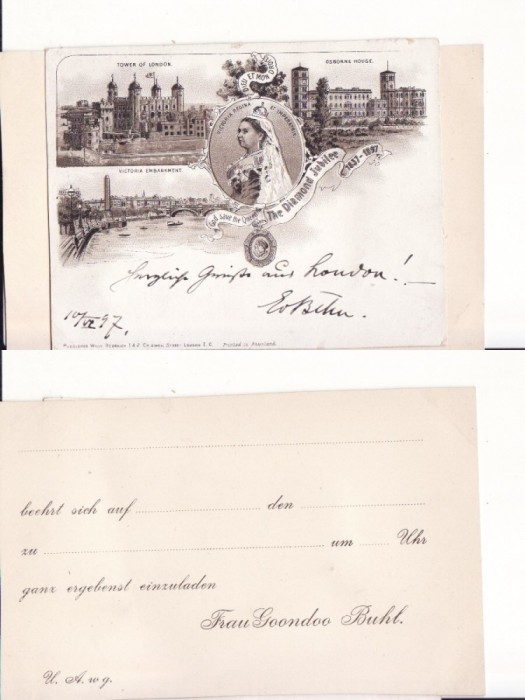 TOWER OF LONDON.
DIEU ET MON DROIT
OSBORNE HOUSE.
VICTORIA REGINA ET IMPERATRIX
VICTORIA EMBANKMENT.
God save the Queen
The Diamond Jubilee
1837-1897
Herzliche Grüße aus London! —
10/VI 97.
Printed in
beehrt sich auf den
zu um Uhr
ganz ergebenst einzuladen
Frau Goondoo Buhl.
U. A. w g.